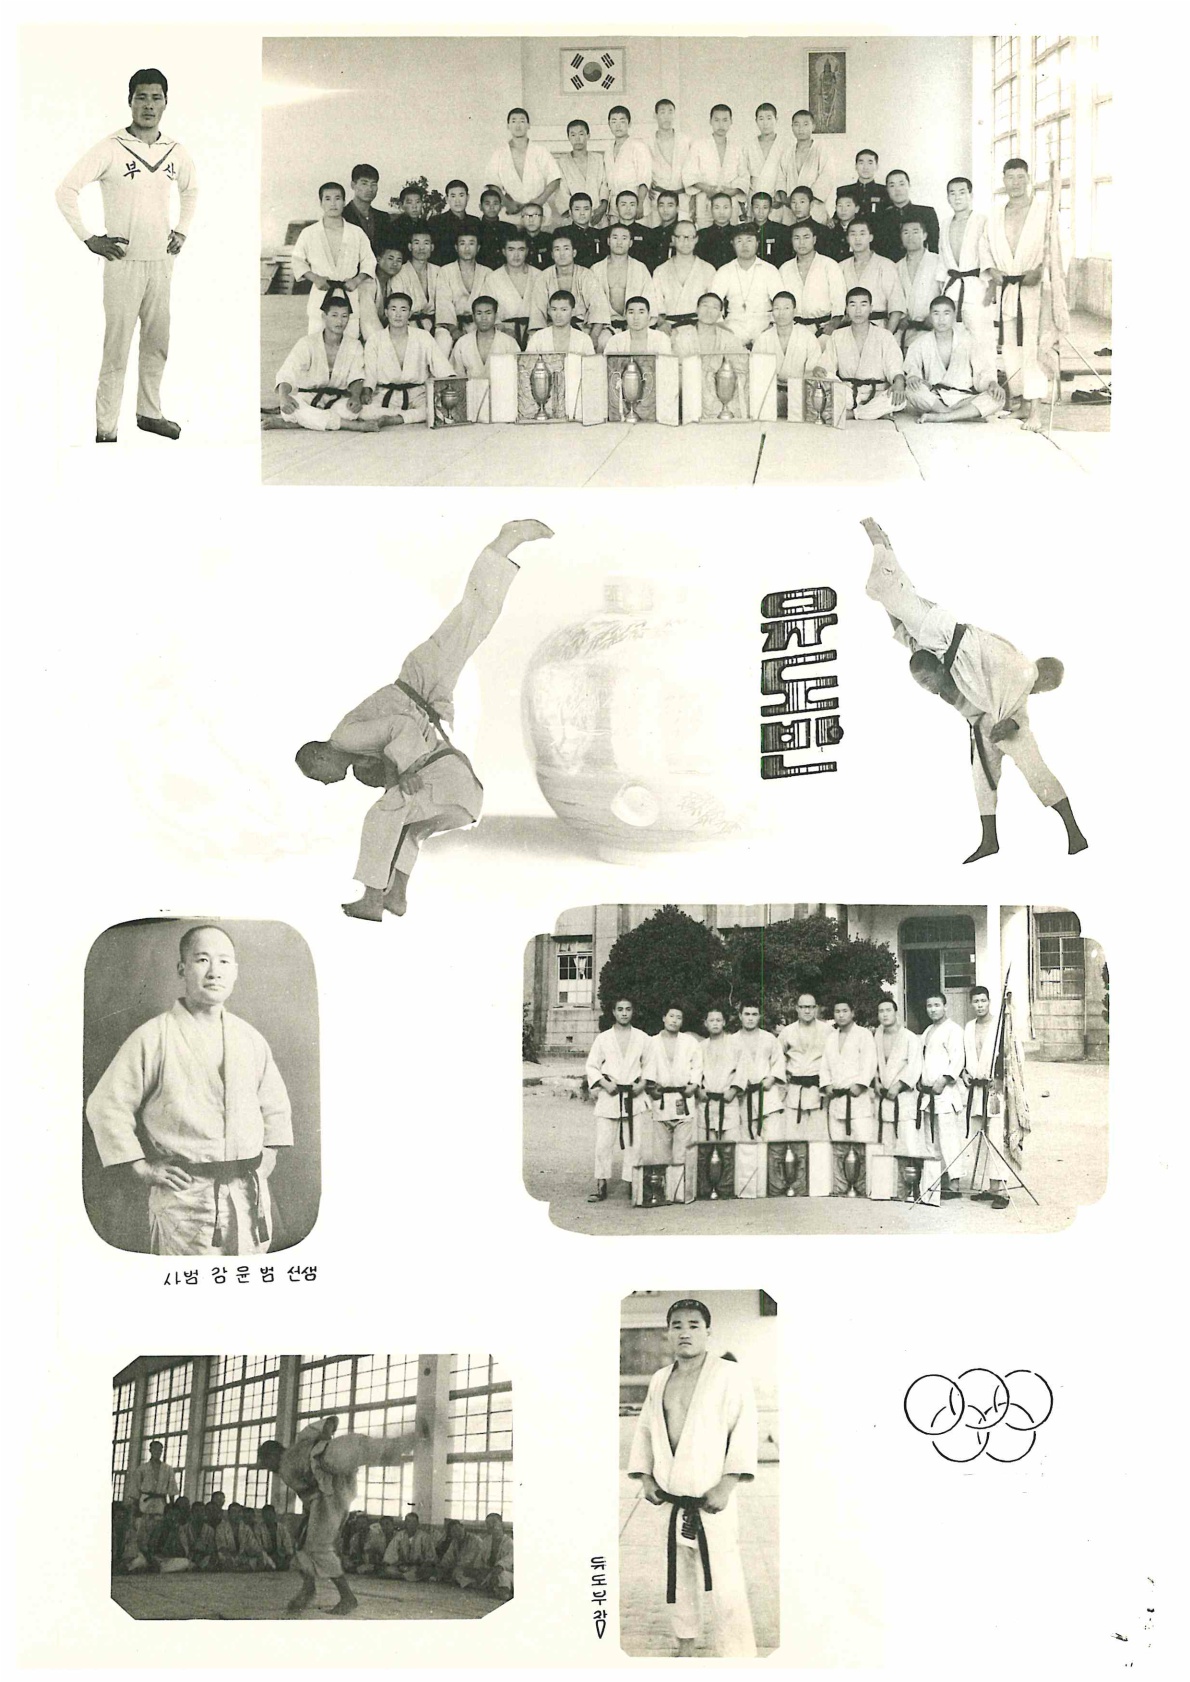 부 산
유도반
사범 강 윤 범 선생
유도부장